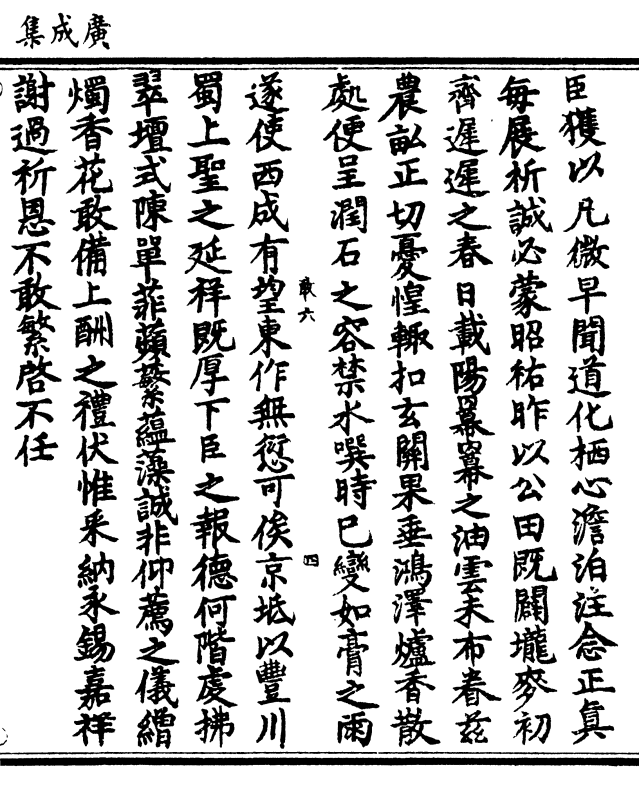 廣成集
臣獲以凡微早聞道化栖心澹泊注念正真
每展祈誠必蒙昭祐昨以公田既闢壠麥初
齊遲遲之春日載陽羃羃之油雲未布眷茲
農畝正切憂惶輙扣玄關果垂鴻澤爐香散
處便呈潤石之容禁水噀時已變如膏之雨
遂使西成有望東作無愆可俟京坻以豐川
蜀上聖之延祥既厚下臣之報德何階虔拂
翠壇式陳單菲蘋蘩蘊藻誠非仰薦之儀繒
燭香花敢備上酬之禮伏惟采納永錫嘉祥
謝過祈恩不敢繁啓不任
敢六
四